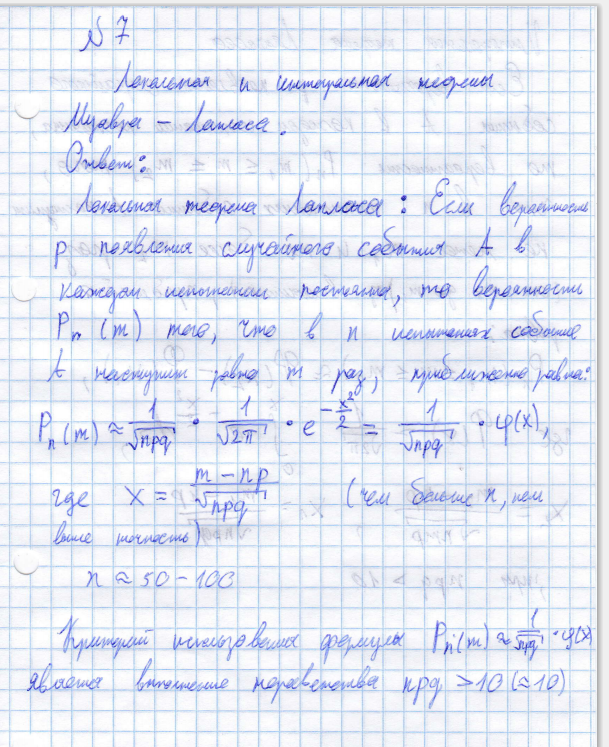 № 7
Локальная и интегральная теоремы
Муавра – Лапласа.
Ответ:
Локальная теорема Лапласа: Если вероятность
p появления случайного события A в
каждом испытании постоянна, то вероятность
Pₙ(m) того, что в n испытаниях событие
A наступит равно m раз, приближенно равна:
Pₙ(m) ≈ 1/√npq · 1/√2π · e^(-x²/2) = 1/√npq · φ(x),
где x = (m – np)/√npq (чем больше n, тем
выше точность)
n ≈ 50 – 100
Критерий использования формулы Pₙ(m) ≈ 1/√npq · φ(x)
является выполнение неравенства npq > 10 (≈10)